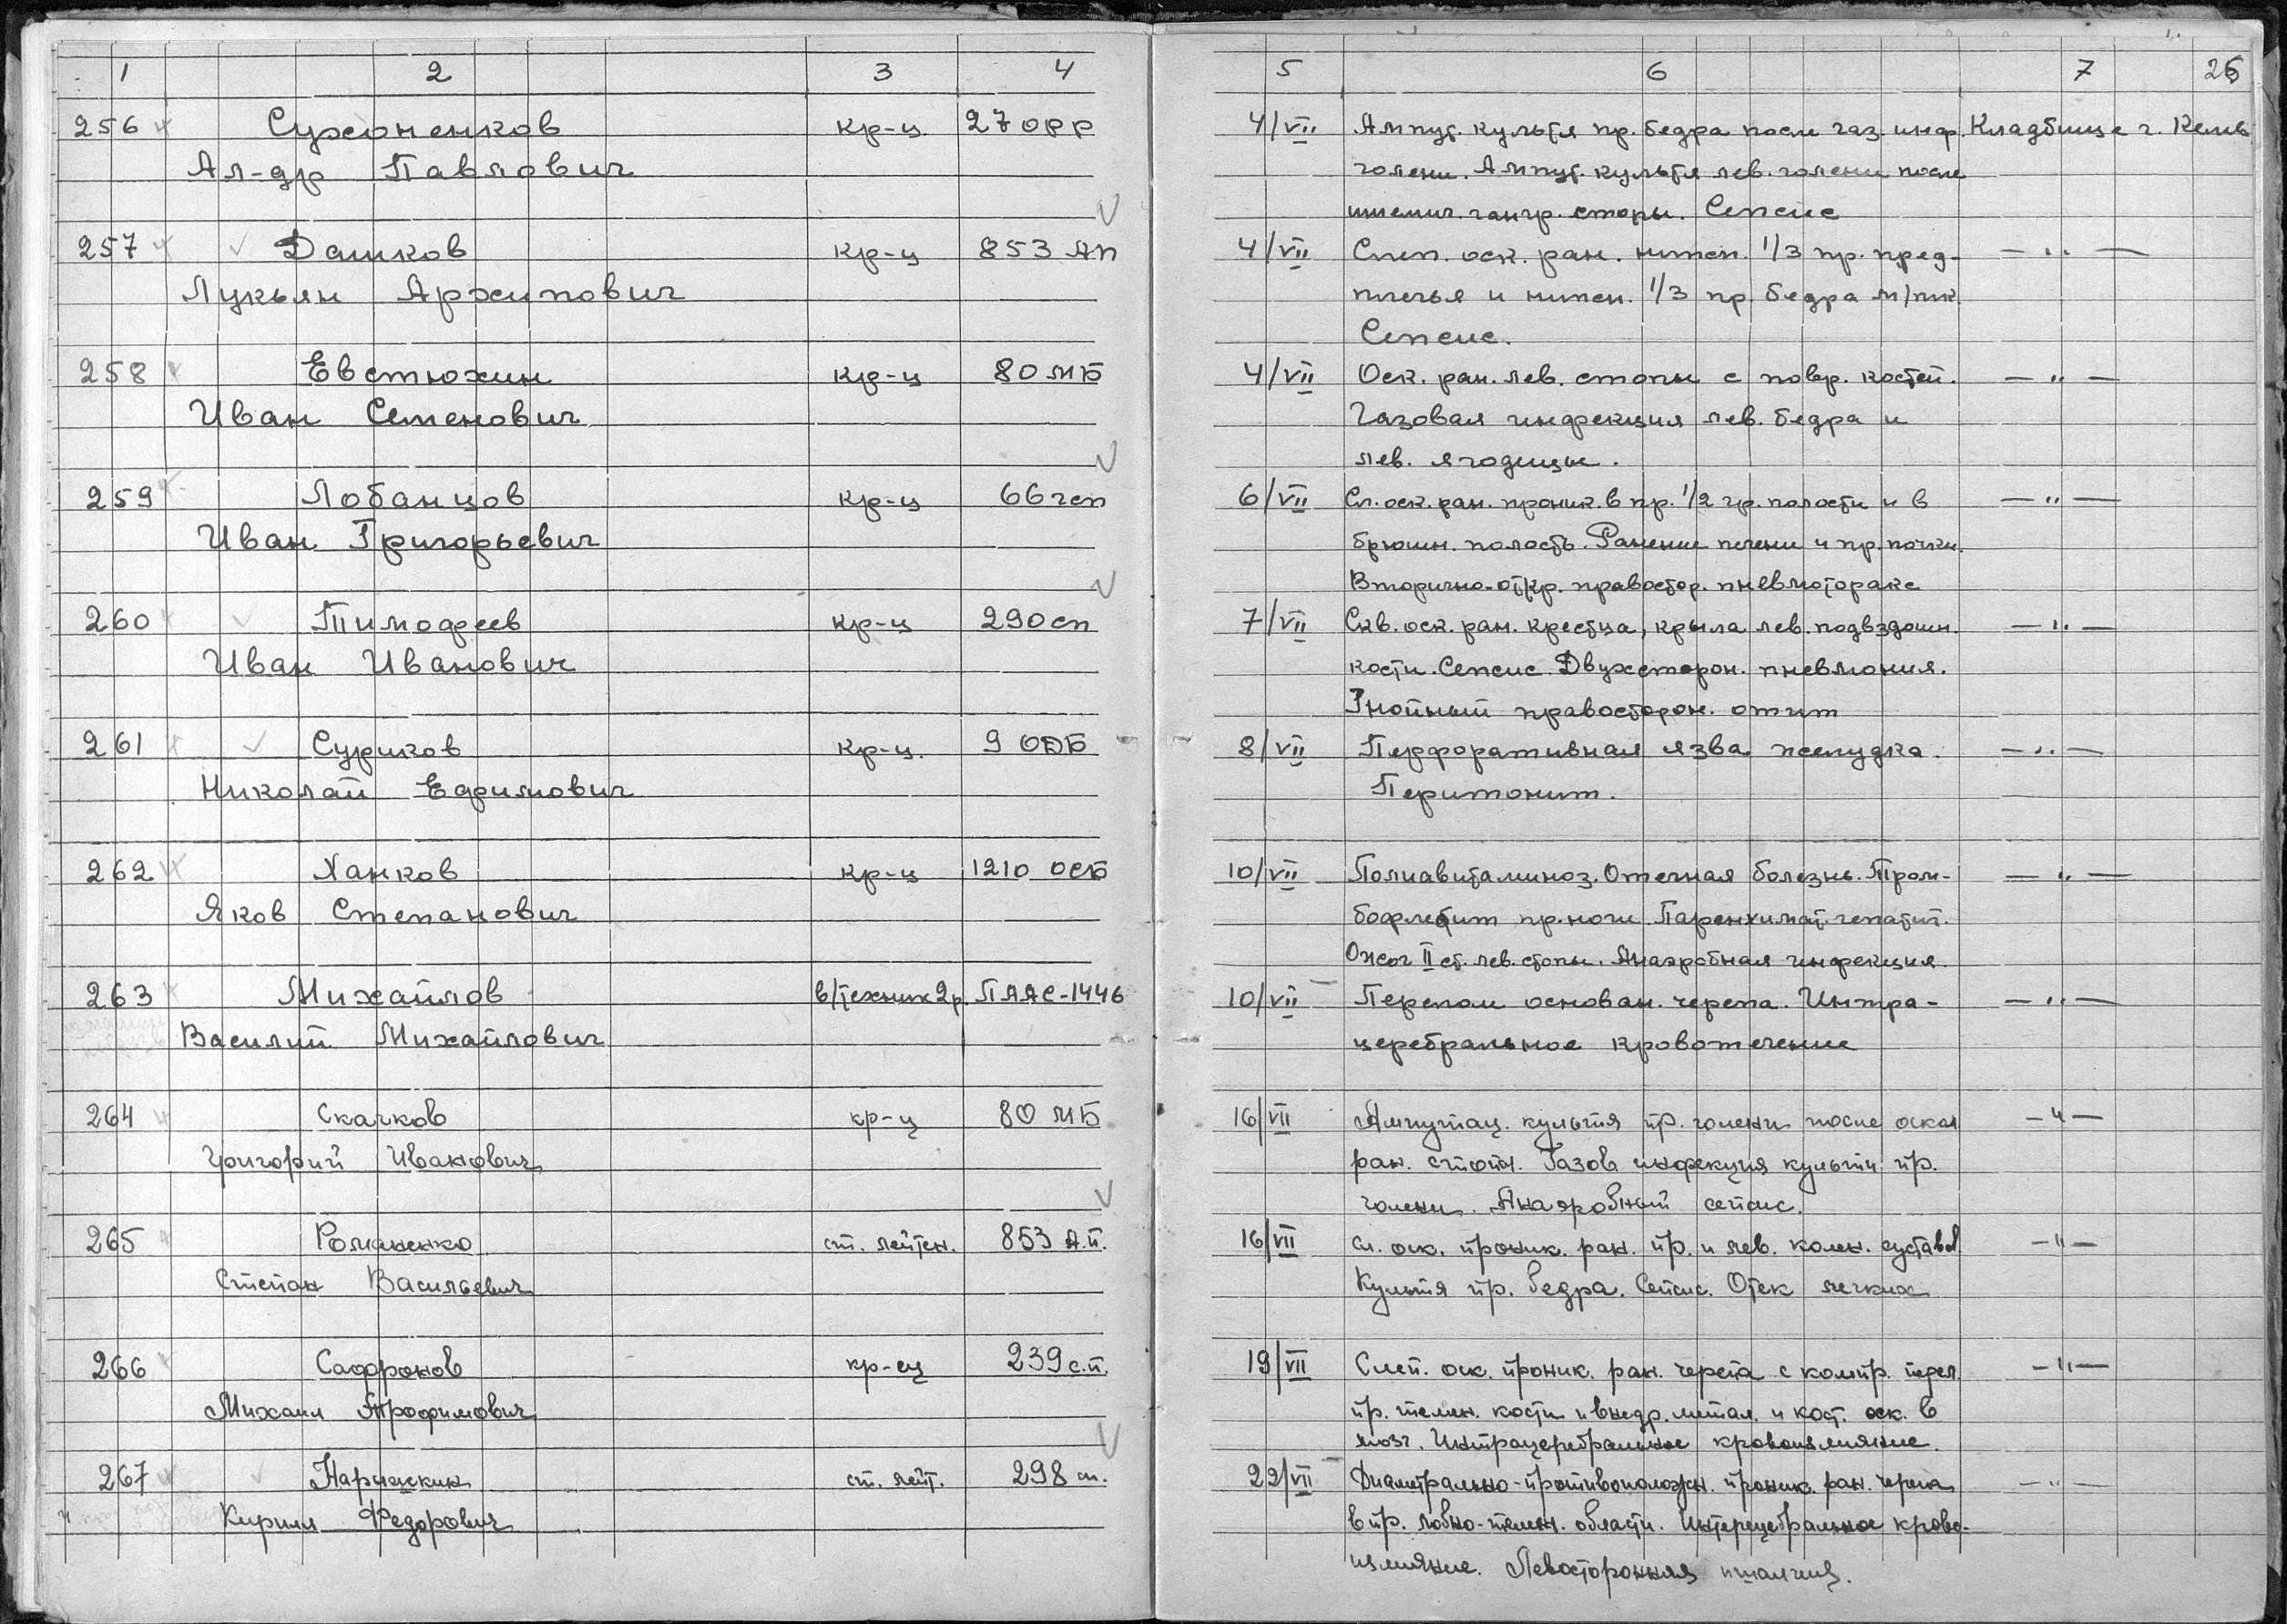 1 2 3 4 5 6 7 26
256 Сухоненков кр-ц 27 ОРР 4/VII Ампут. культя пр. бедра после газ. инф. Кладбище г. Кемь
Ал-др Павлович голени. Ампут. культя лев. голени после
ишемич. гангр. стопы. Сепсис
257 Дашков кр-ц 853 АП 4/VII Слеп. оск. ран. нижн. 1/3 пр. пред- — " —
Лукьян Архипович плечья и нижн. 1/3 пр. бедра м/тк.
Сепсис.
258 Евстюхин кр-ц 80 МБ 4/VII Оск. ран. лев. стопы с повр. костей. — " —
Иван Семенович Газовая инфекция лев. бедра и
лев. ягодицы.
259 Лобанцов кр-ц 66 гсп 6/VII Сл. оск. ран. проник. в пр. 1/2 гр. полости и в — " —
Иван Григорьевич брюшн. полость. Ранение печени и пр. почки.
Вторично-откр. правостор. пневмоторакс
260 Тимофеев кр-ц 290 сп 7/VII Скв. оск. ран. крестца, крыла лев. подвздошн. — " —
Иван Иванович кости. Сепсис. Двухсторон. пневмония.
Гнойный правосторон. отит
261 Суриков кр-ц. 9 ОДБ 8/VII Перфоративная язва желудка. — " —
Николай Ефимович Перитонит.
262 Ханков кр-ц 1210 ОСБ 10/VII Полиавитаминоз. Отечная болезнь. Тром- — " —
Яков Степанович бофлебит пр. ноги. Паренхимат. гепатит.
Ожог II ст. лев. стопы. Анаэробная инфекция.
263 Михайлов в/техник 2 р. ПААС-1446 10/VII Перелом основан. черепа. Интра- — " —
Василий Михайлович церебральное кровотечение
264 Скачков кр-ц 80 МБ 16/VII Ампутац. культя пр. голени после оскол — " —
Григорий Иванович ран. стопы. Газов. инфекция культи пр.
голени. Анаэробный сепсис.
265 Романенко ст. лейтен. 853 А.П. 16/VII Сл. оск. проник. ран. пр. и лев. колен. сустава — " —
Степан Васильевич Культя пр. бедра. Сепсис. Отек легких
266 Сафронов кр-ец 239 с.п. 19/VII Слеп. оск. проник. ран. черепа с компр. перел. — " —
Михаил Трофимович пр. темен. кости и внедр. метал. и кост. оск. в
мозг. Интрацеребральное кровоизлияние.
267 Нарышкин ст. лейт. 298 сп. 22/VII Диаметрально-противоположн. проник. ран. черепа — " —
Кирилл Федорович в пр. лобно-темен. области. Интерцебральное крово-
излияние. Левосторонняя